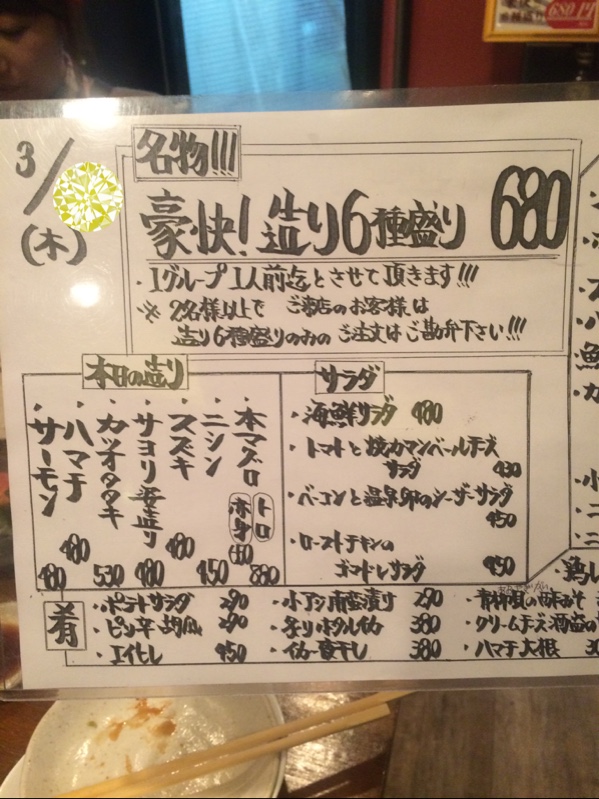 680円
3/
(木)
名物!!!
豪快!造り6種盛り 680
・1グループ1人前迄とさせて頂きます!!!
※2名様以上で ご来店のお客様は
造り6種盛りのみのご注文はご勘弁下さい!!!
本日の造り
・本マグロ トロ 880
赤身
・ニシン 450
・スズキ 480
・サヨリ姿造り 480
・カツオタタキ 530
・ハマチ 480
・サーモン 480
サラダ
・海鮮サラダ 480
・トマトと焼カマンベールチーズ
サラダ 430
・ベーコンと温泉卵のシーザーサラダ
450
・ローストチキンの
ゴマドレサラダ 450
肴
・ポテトサラダ 290
・ピリ辛胡瓜 290
・エイヒレ 450
・小アジ南蛮漬け 290
・生ホタルイカ 380
・イカ一夜干し 380
・クリームチーズ酒盗の
・ハマチ大根